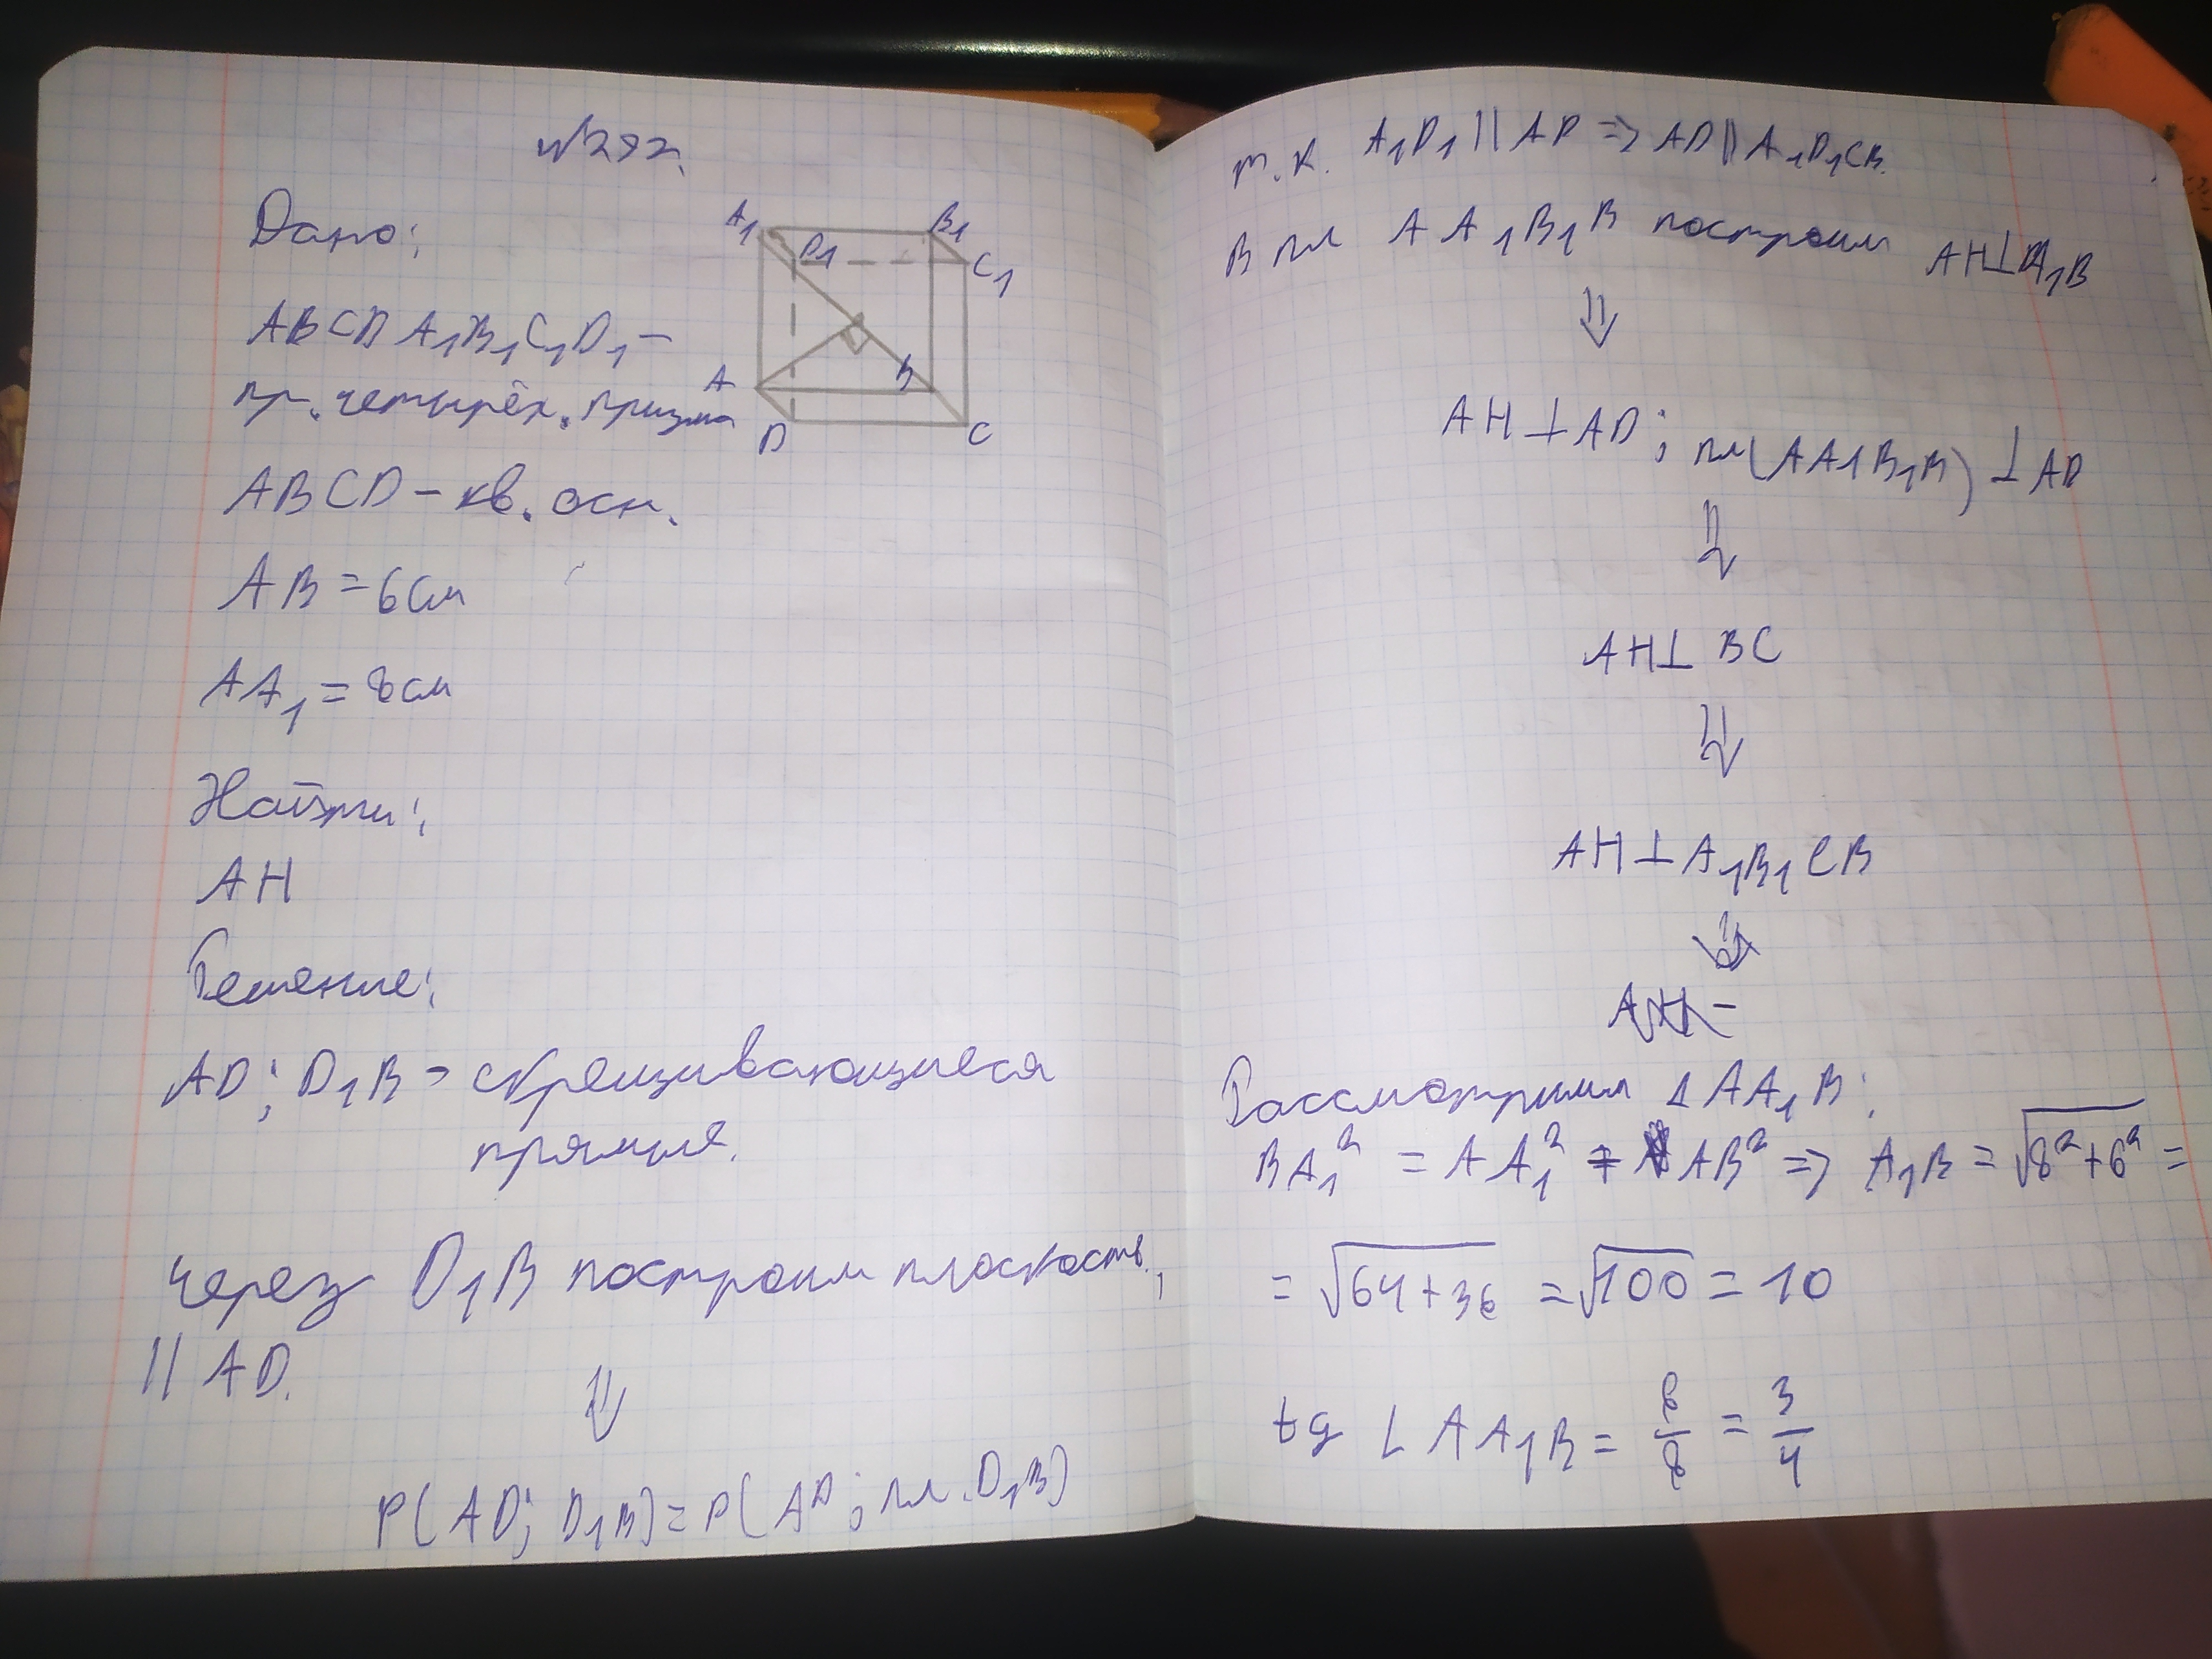 №292.
Дано:
A1 B1
D1 C1
ABCDA1B1C1D1 –
пр. четырёх. призма
A B
D C
ABCD – кв. осн.
AB = 6 см
AA1 = 8 см
Найти:
AH
Решение:
AD; D1B – скрещивающиеся
прямые.
через D1B построим плоскость,
|| AD.
⇓
P(AD; D1B) = P(AD; пл. D1B)
т.к. A1D1 || AD => AD || A1D1CB.
В пл AA1B1B построим AH⊥A1B
⇓
AH ⊥ AD; пл(AA1B1B) ⊥ AD
⇓
AH ⊥ BC
⇓
AH ⊥ A1B1CB
Рассмотрим Δ AA1B:
BA1² = AA1² + AB² => A1B = √8²+6² =
= √64+36 = √100 = 10
tg ∠ AA1B = 6/8 = 3/4